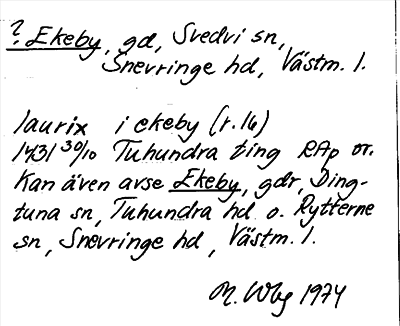 ? Ekeby, gd, Svedvi sn,
Snevringe hd, Västm. l.
laurix i ekeby (r. 16)
1431 30/10 Tuhundra ting RAp or.
Kan även avse Ekeby, gdr, Ding-
tuna sn, Tuhundra hd o. Rytterne
sn, Snevringe hd, Västm. l.
M. Wbg 1974